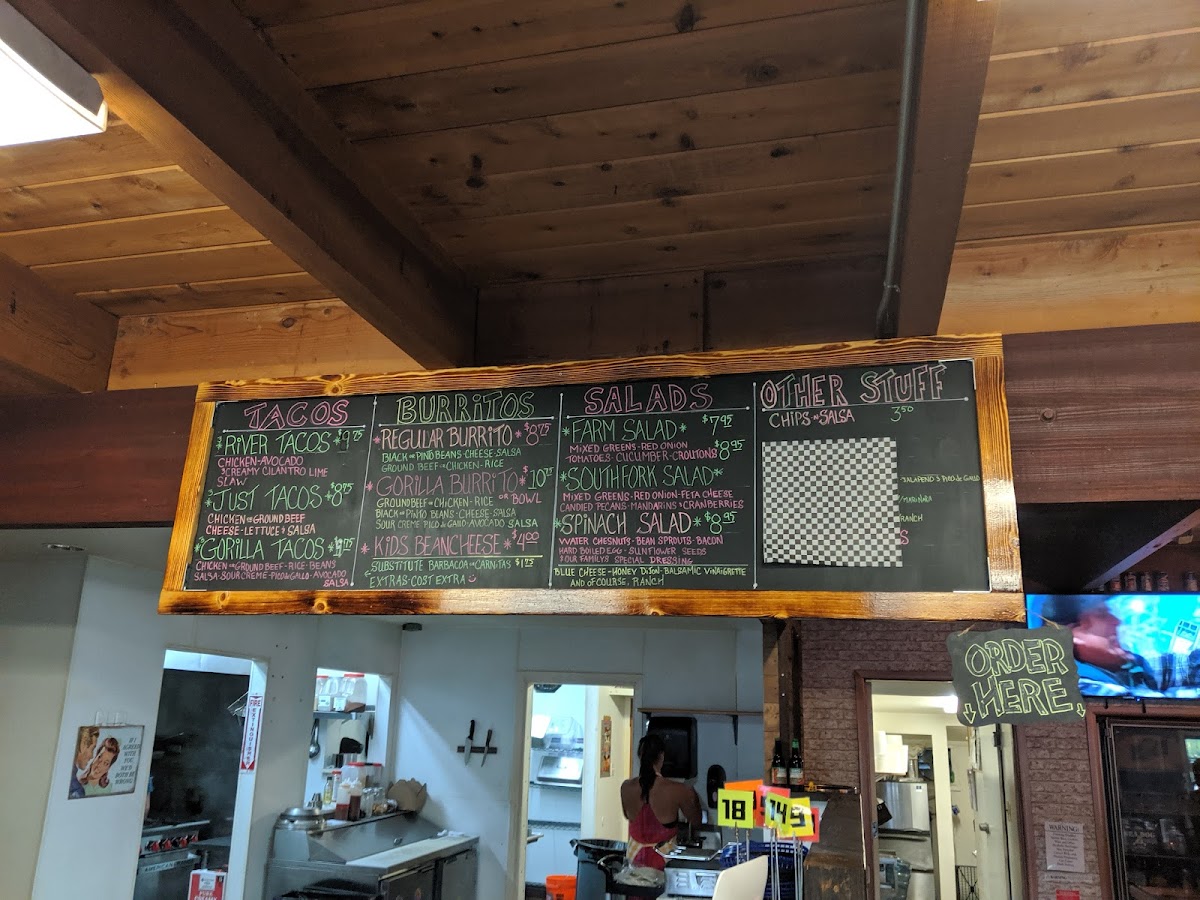 TACOS
RIVER TACOS $9.75
CHICKEN-AVOCADO
CREAMY CILANTRO LIME
SLAW
JUST TACOS $8.75
CHICKEN OR GROUND BEEF
CHEESE-LETTUCE & SALSA
GORILLA TACOS
CHICKEN OR GROUND BEEF-RICE-BEANS
SALSA-SOUR CREME-PICO de GALLO-AVOCADO
SALSA
BURRITOS
*REGULAR BURRITO* $8.75
BLACK OR PINTO BEANS-CHEESE-SALSA
GROUND BEEF OR CHICKEN-RICE
*GORILLA BURRITO* $10.75
GROUND BEEF OR CHICKEN-RICE OR BOWL
BLACK OR PINTO BEANS-CHEESE-SALSA
SOUR CREME PICO de GALLO-AVOCADO SALSA
*KIDS BEANCHEESE* $4.00
SUBSTITUTE BARBACOA OR CARNITAS $1.75
EXTRAS COST EXTRA
SALADS
*FARM SALAD* $7.95
MIXED GREENS-RED ONION $8.95
TOMATOES-CUCUMBER-CROUTONS
*SOUTHFORK SALAD*
MIXED GREENS-RED ONION-FETA CHEESE
CANDIED PECANS-MANDARINS & CRANBERRIES
*SPINACH SALAD* $8.95
WATER CHESNUTS-BEAN SPROUTS-BACON
HARD BOILED EGG-SUNFLOWER SEEDS
& OUR FAMILY'S SPECIAL DRESSING
BLUE CHEESE-HONEY DIJON-BALSAMIC VINAIGRETTE
AND OF COURSE, RANCH
OTHER STUFF
CHIPS & SALSA 3.50
JALAPENO & PICO de GALLO
MARINARA
RANCH
S
ORDER
HERE
FIRE
EXTINGUISHER
IF I
AGREED
WITH
YOU,
WE'D
BOTH BE
WRONG.
18
14
9
WARNING
AMERICAN